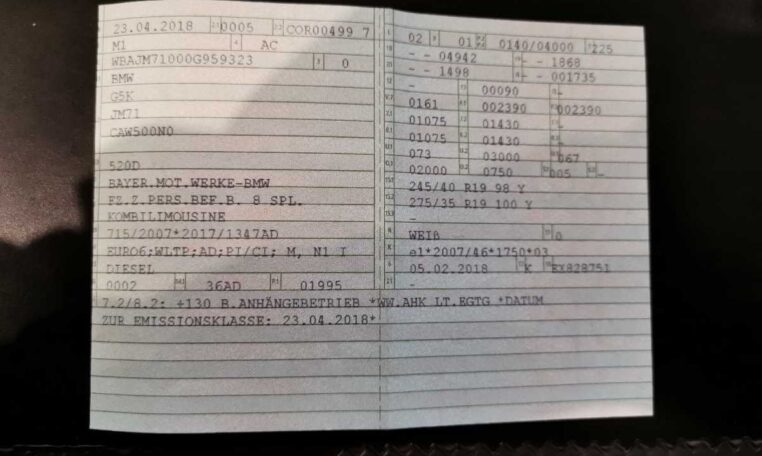 23.04.2018 0005 COR00499 7
M1 AC
WBAJM71000G959323 0
BMW
G5K
JM71
CAW500N0
520D
BAYER.MOT.WERKE-BMW
FZ.Z.PERS.BEF.B. 8 SPL.
KOMBILIMOUSINE
715/2007*2017/1347AD
EURO6;WLTP;AD;PI/CI; M, N1 I
DIESEL
0002 36AD 01995
02 01 0140/04000 225
- - 04942 - - 1868
- - 1498 - 001735
- 00090 -
0161 002390 002390
01075 01430 -
01075 01430 -
073 03000 067
02000 0750 005 -
245/40 R19 98 Y
275/35 R19 100 Y
-
WEIß 0
e1*2007/46*1750*03
05.02.2018 K EX828751
-
7.2/8.2: +130 B.ANHÄNGEBETRIEB *WW.AHK LT.EGTG *DATUM
ZUR EMISSIONSKLASSE: 23.04.2018*